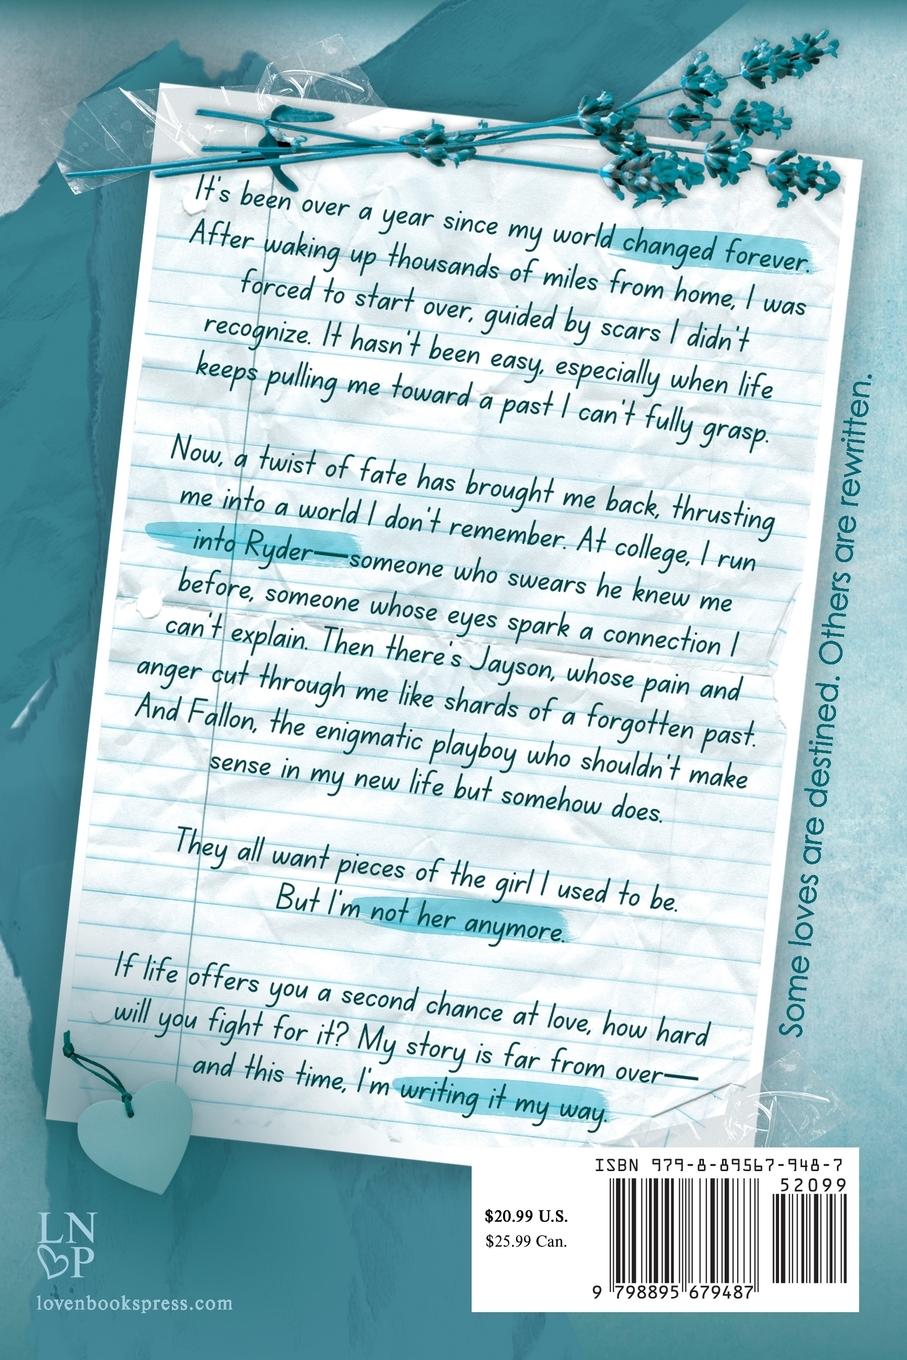 It's been over a year since my world changed forever.
After waking up thousands of miles from home, I was
forced to start over, guided by scars I didn't
recognize. It hasn't been easy, especially when life
keeps pulling me toward a past I can't fully grasp.
Now, a twist of fate has brought me back, thrusting
me into a world I don't remember. At college, I run
into Ryder—someone who swears he knew me
before, someone whose eyes spark a connection I
can't explain. Then there's Jayson, whose pain and
anger cut through me like shards of a forgotten past.
And Fallon, the enigmatic playboy who shouldn't make
sense in my new life but somehow does.
They all want pieces of the girl I used to be.
But I'm not her anymore.
If life offers you a second chance at love, how hard
will you fight for it? My story is far from over—
and this time, I'm writing it my way.
Some loves are destined. Others are rewritten.
LN
P
lovenbookspress.com
$20.99 U.S.
$25.99 Can.
ISBN 979-8-89567-948-7
52099
9 798895 679487